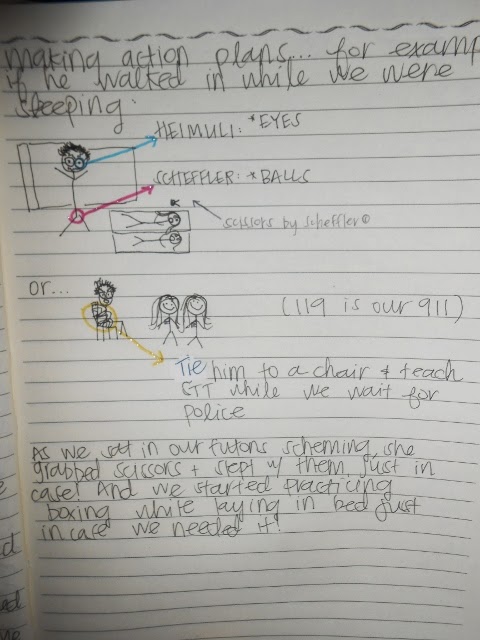 making action plans... for examp
if he walked in while we were
sleeping:
HEIMULI: *EYES
SCHEFFLER: *BALLS
scissors by scheffler
or...
(119 is our 911)
Tie him to a chair & teach
while we wait for
police
As we sat in our futons scheming, she
grabbed scissors + slept w/ them just in
case! And we started practicing
boxing while laying in bed just
in case we needed it!